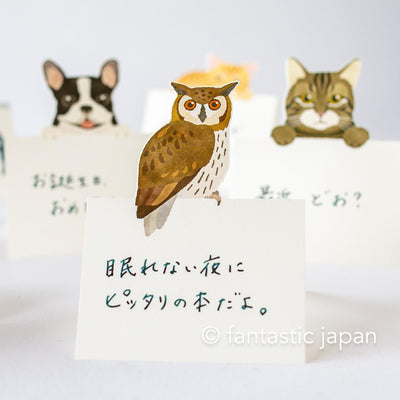 お誕生日、
おめ
最近 どお？
眠れない夜に
ピッタリの本だよ。
© fantastic japan